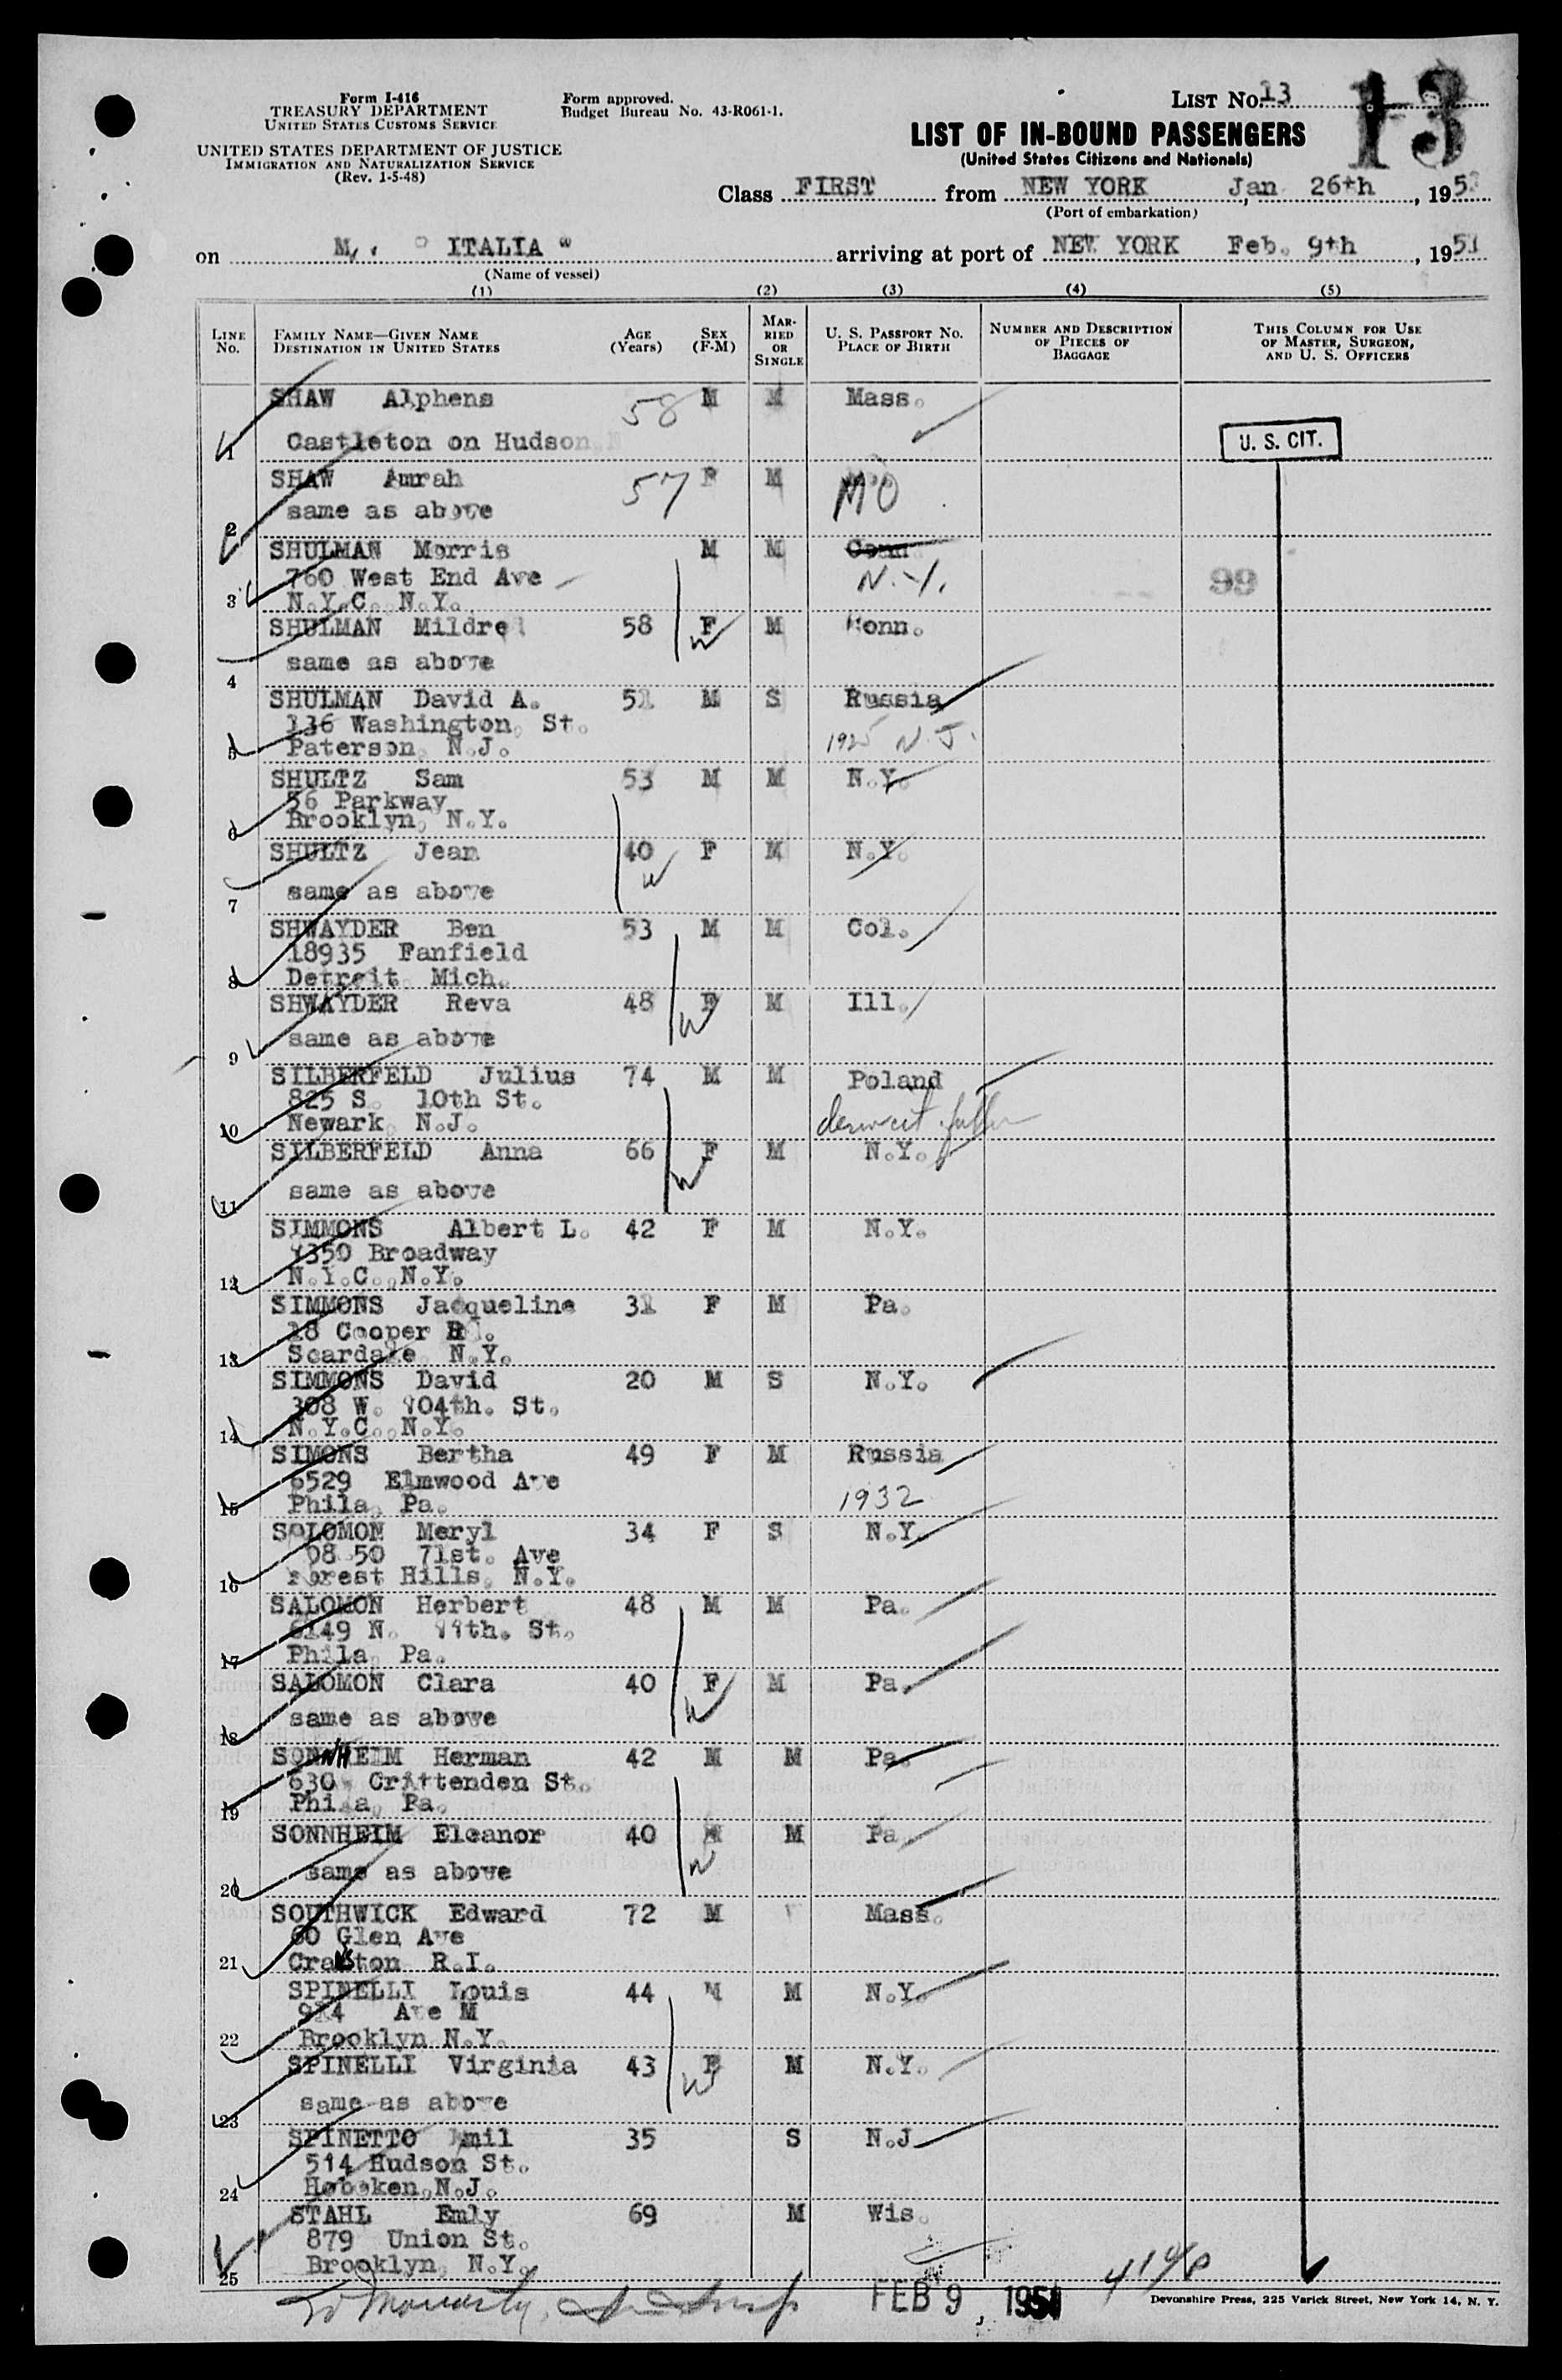 Form I-416
TREASURY DEPARTMENT
UNITED STATES CUSTOMS SERVICE
UNITED STATES DEPARTMENT OF JUSTICE
IMMIGRATION AND NATURALIZATION SERVICE
(Rev. 1-5-48)
Form approved.
Budget Bureau No. 43-R061-1.
LIST No. 13
13
LIST OF IN-BOUND PASSENGERS
(United States Citizens and Nationals)
Class FIRST from NEW YORK Jan 26th, 195
(Port of embarkation)
on M. " ITALIA " arriving at port of NEW YORK Feb. 9th, 1951
(Name of vessel)
(1) (2) (3) (4) (5)
LINE No. FAMILY NAME—GIVEN NAME DESTINATION IN UNITED STATES AGE (Years) SEX (F-M) MARRIED OR SINGLE U. S. PASSPORT NO. PLACE OF BIRTH NUMBER AND DESCRIPTION OF PIECES OF BAGGAGE THIS COLUMN FOR USE OF MASTER, SURGEON, AND U. S. OFFICERS
SHAW Alphens 58 M M Mass.
1 Castleton on Hudson U. S. CIT.
SHAW Amrah 57 F M MO
2 same as above
SHULMAN Morris M M Conn
760 West End Ave N.Y. 99
3 N.Y.C. N.Y.
SHULMAN Mildred 58 F M Conn.
W
4 same as above
SHULMAN David A. 51 M S Russia
136 Washington, St. 1925 N.J.
5 Paterson, N.J.
SHULTZ Sam 53 M M N.Y.
56 Parkway
6 Brooklyn, N.Y.
SHULTZ Jean 40 F M N.Y.
W
7 same as above
SHWAYDER Ben 53 M M Col.
18935 Fanfield
8 Detroit, Mich.
SHWAYDER Reva 48 F M Ill.
W
9 same as above
SILBERFELD Julius 74 M M Poland
825 S. 10th St.
10 Newark, N.J.
SILBERFELD Anna 66 F M N.Y.
W
11 same as above
SIMMONS Albert L. 42 F M N.Y.
1350 Broadway
12 N.Y.C., N.Y.
SIMMONS Jacqueline 31 F M Pa.
18 Cooper Rd.
13 Scardale, N.Y.
SIMMONS David 20 M S N.Y.
308 W. 104th. St.
14 N.Y.C., N.Y.
SIMONS Bertha 49 F M Russia
6529 Elmwood Ave 1932
15 Phila, Pa.
SOLOMON Meryl 34 F S N.Y.
08 50 71st. Ave
16 Forest Hills, N.Y.
SALOMON Herbert 48 M M Pa.
6149 N. 11th. St.
17 Phila, Pa.
SALOMON Clara 40 F M Pa.
W
18 same as above
SONNHEIM Herman 42 M M Pa.
630 Crittenden St.
19 Phila, Pa.
SONNHEIM Eleanor 40 M Pa
W
20 same as above
SOUTHWICK Edward 72 M Mass.
60 Glen Ave
21 Cranston R.I.
SPINELLI Louis 44 M M N.Y.
914 Ave M
22 Brooklyn N.Y.
SPINELLI Virginia 43 F M N.Y.
W
23 same as above
SPINETTO Emil 35 S N.J.
514 Hudson St.
24 Hoboken, N.J.
STAHL Emly 69 M Wis.
879 Union St.
25 Brooklyn, N.Y.
FEB 9, 1951
Devonshire Press, 225 Varick Street, New York 14, N. Y.